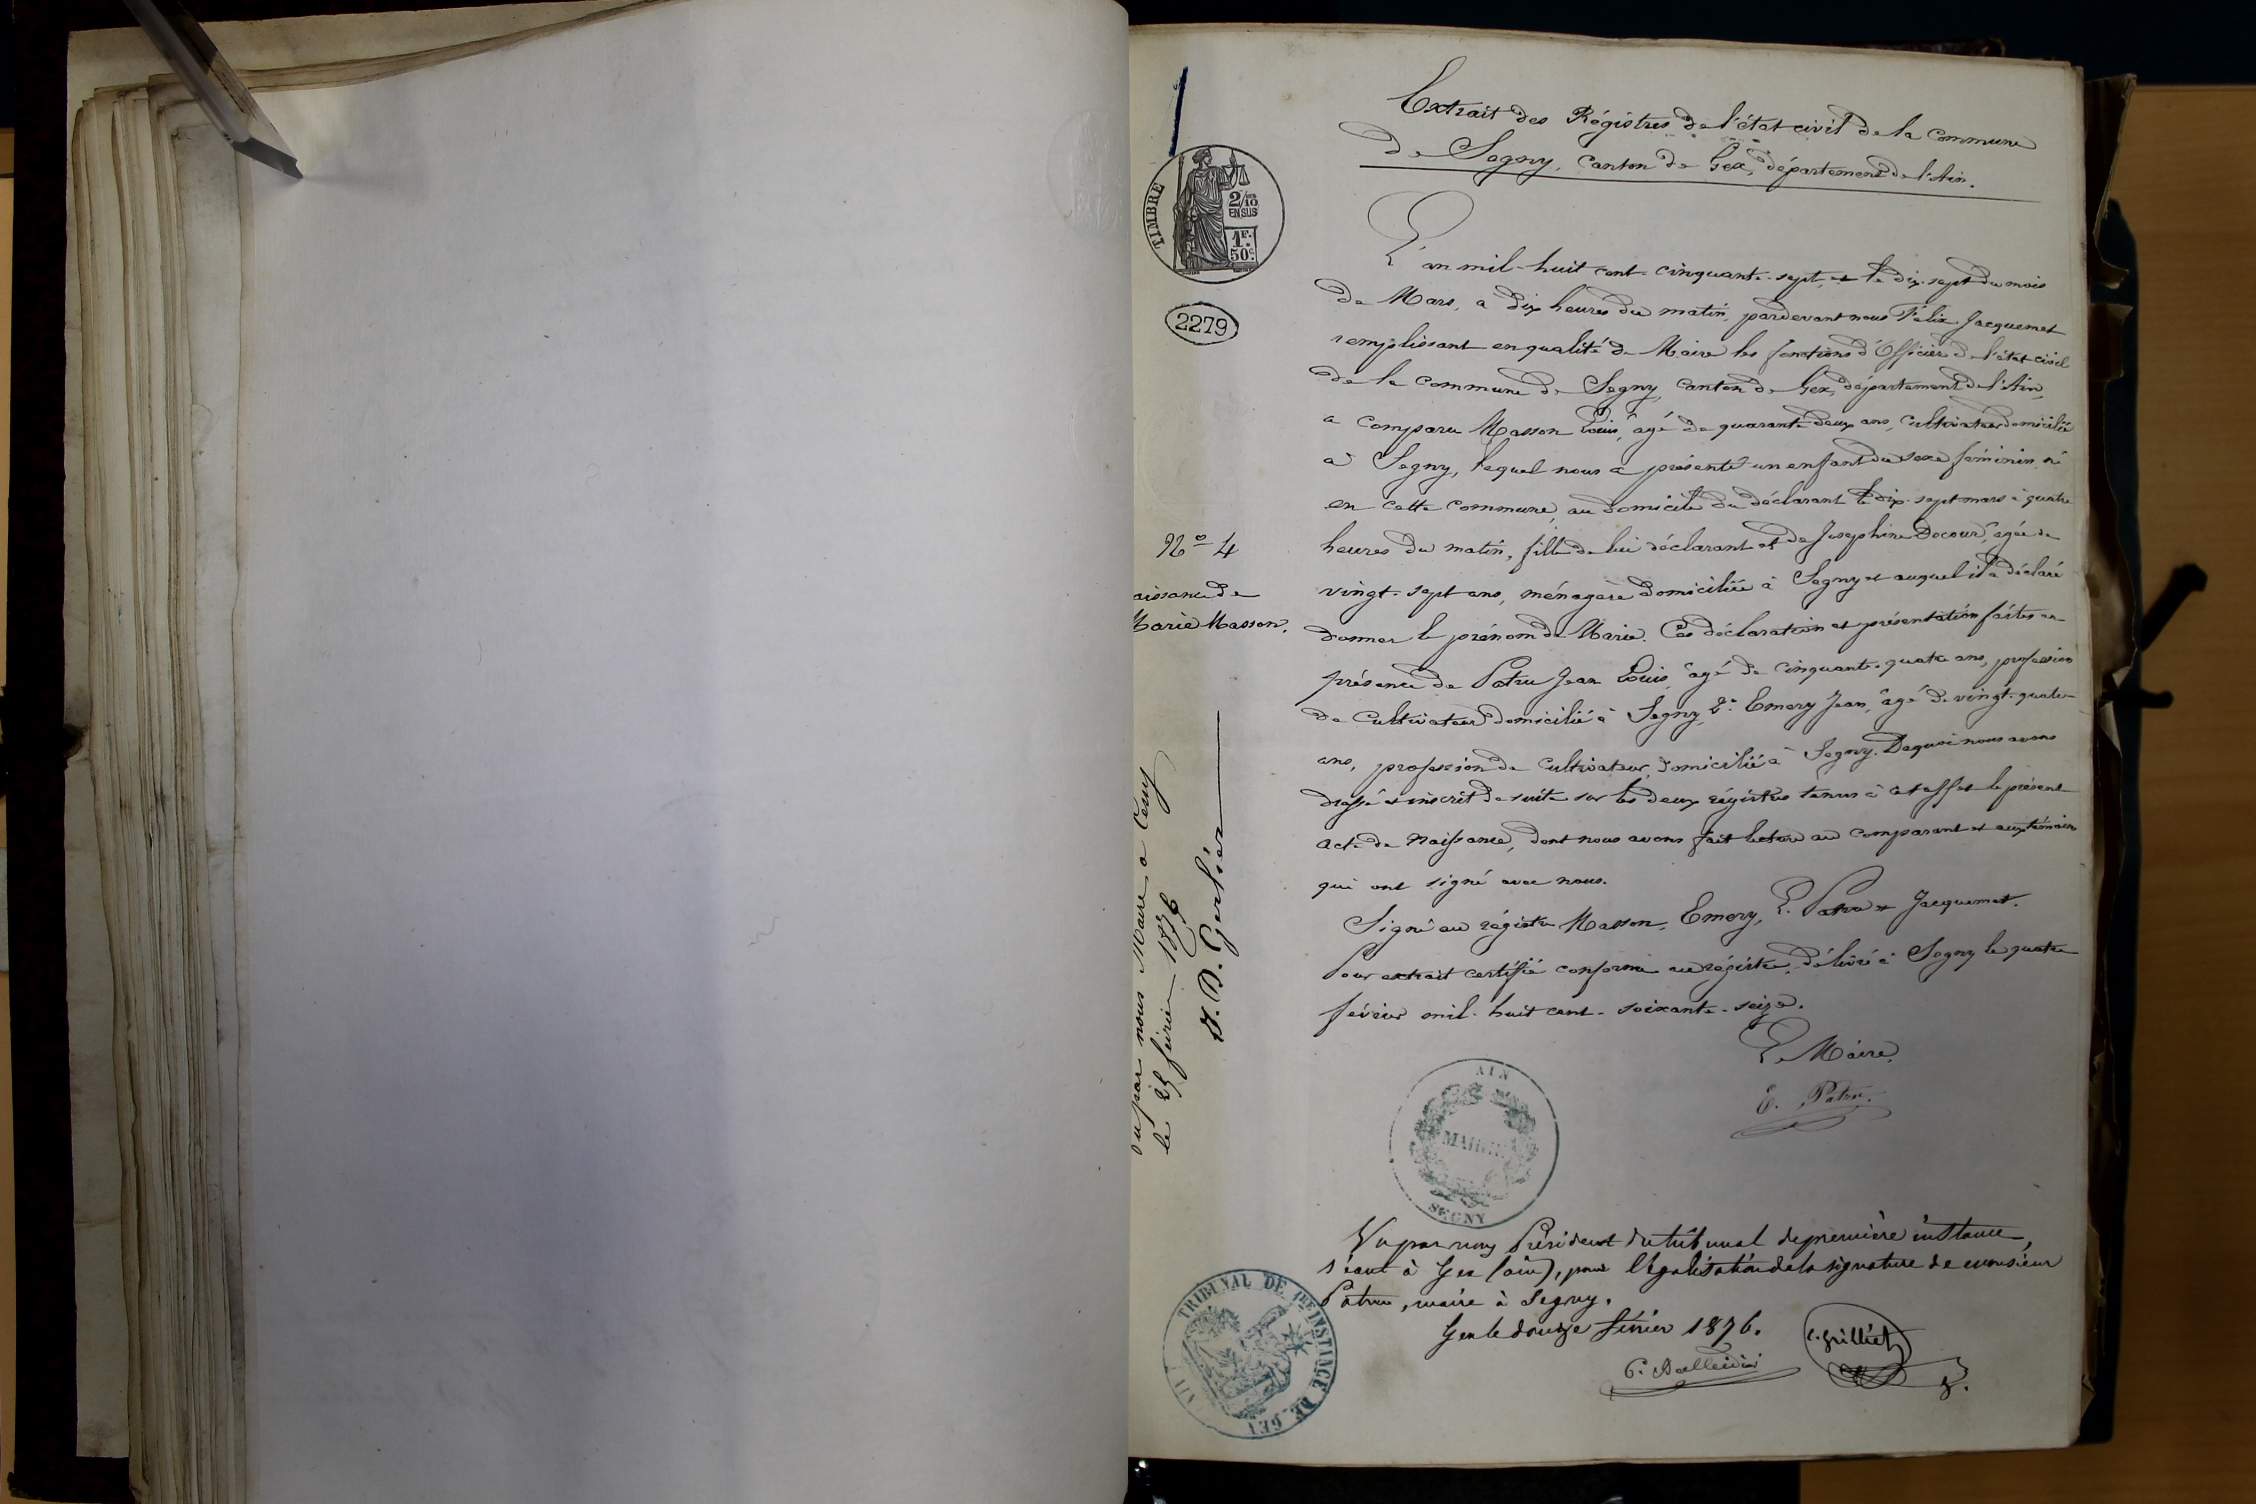 Extrait des Régistres de l'état civil de la Commune
de Segny, Canton de Gex, département de l'Ain.
TIMBRE
2/10
EN SUS
1F.
50c.
2279
L'an mil-huit cent-cinquante-sept, et le dix-sept du mois
de Mars, à dix heures du matin, pardevant nous Félix Jacquemet
remplissant en qualité de Maire les fonctions d'Officier de l'état civil
de la Commune de Segny, Canton de Gex, département de l'Ain,
a Comparu Masson Louis, âgé de quarante deux ans, Cultivateur domicilié
à Segny, lequel nous a présenté un enfant du sexe féminin, né
en cette Commune, au domicile du déclarant le dix-sept mars à quatre
heures du matin, fille de lui déclarant et de Josephine Decour, agée de
vingt-sept ans, ménagère domiciliée à Segny et auquel il a déclaré
donner le prénom de Marie. Ces déclaration et présentation faites en
présence de Patru Jean Louis, âgé de cinquante-quatre ans, profession
de Cultivateur domicilié à Segny, 2° Emery Jean, âgé de vingt-quatre
ans, profession de Cultivateur, domicilié à Segny. De quoi nous avons
dressé et inscrit de suite sur les deux régistres tenus à cet effet le présent
acte de Naissance, dont nous avons fait lecture au comparant et aux témoins
qui ont signé avec nous.
Signé au régistre Masson, Emery, L. Patru et Jacquemet.
Pour extrait certifié conforme au régistre, délivré à Segny le quatre
février mil-huit cent-soixante-seize.
Le Maire,
E. Patru.
N° 4
aissance de
Marie Masson.
Vu par nous Maire à Cessy
le 25 février 1876
A. D. Gerlier
AIN
MAIRIE
SEGNY
Vu par nous Président du tribunal de première instance,
séant à Gex (ain), pour légalisation de la signature de monsieur
Patru, maire à Segny.
Gex le douze février 1876.
C. Grilliet
TRIBUNAL DE 1ERE INSTANCE DE GEX
AIN